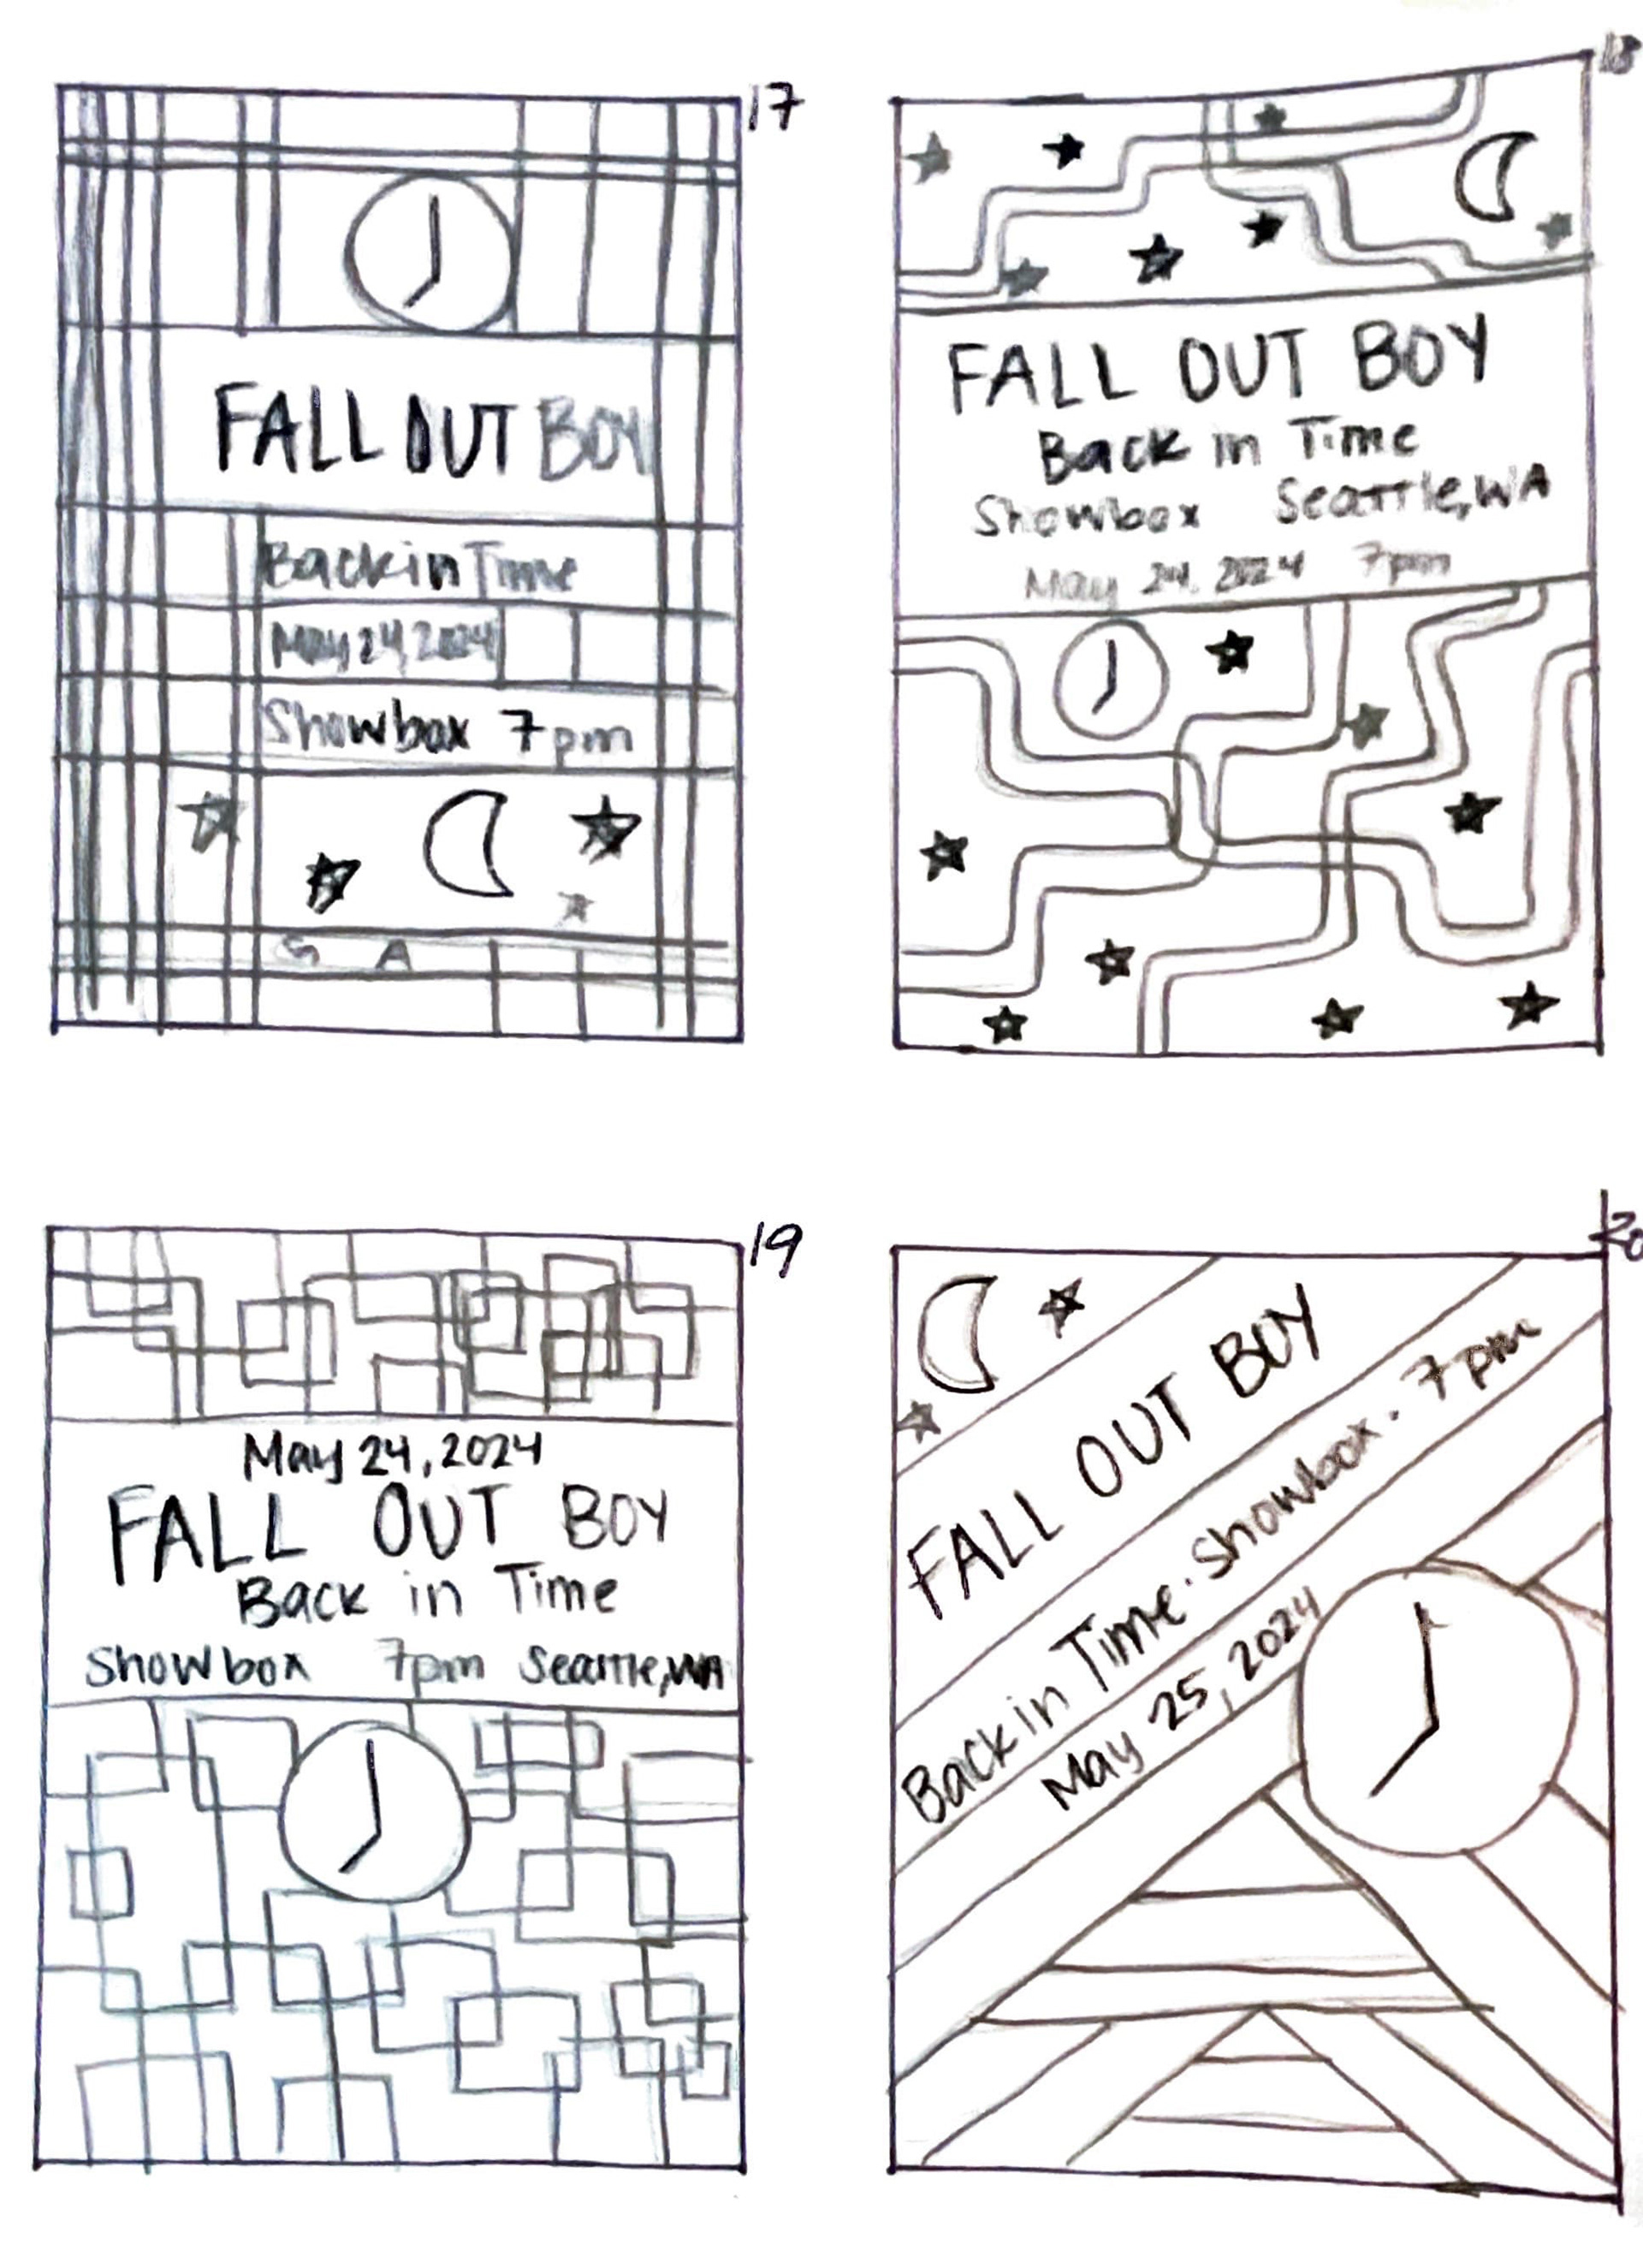 17
FALL OUT BOY
Back in Time
May 24, 2024
Showbox 7pm
S A
18
FALL OUT BOY
Back in Time
Showbox Seattle, WA
May 24, 2024 7pm
19
May 24, 2024
FALL OUT BOY
Back in Time
Showbox 7pm Seattle, WA
20
FALL OUT BOY
Back in Time · Showbox · 7pm
May 25, 2024